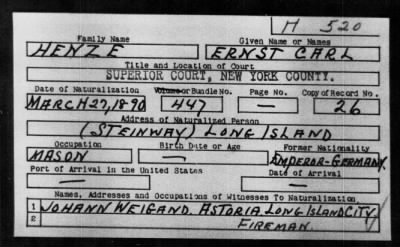 H 520
Family Name Given Name or Names
HENZE ERNST CARL
Title and Location of Court
SUPERIOR COURT, NEW YORK COUNTY.
Date of Naturalization Volume or Bundle No. Page No. Copy of Record No.
MARCH 27, 1890 447 — 26
Address of Naturalized Person
(STEINWAY) LONG ISLAND
Occupation Birth Date or Age Former Nationality
MASON — EMPEROR-GERMANY
Port of Arrival in the United States Date of Arrival
— —
Names, Addresses and Occupations of Witnesses To Naturalization
1 JOHANN WEIGAND. ASTORIA, LONG ISLAND CITY
2 FIREMAN.